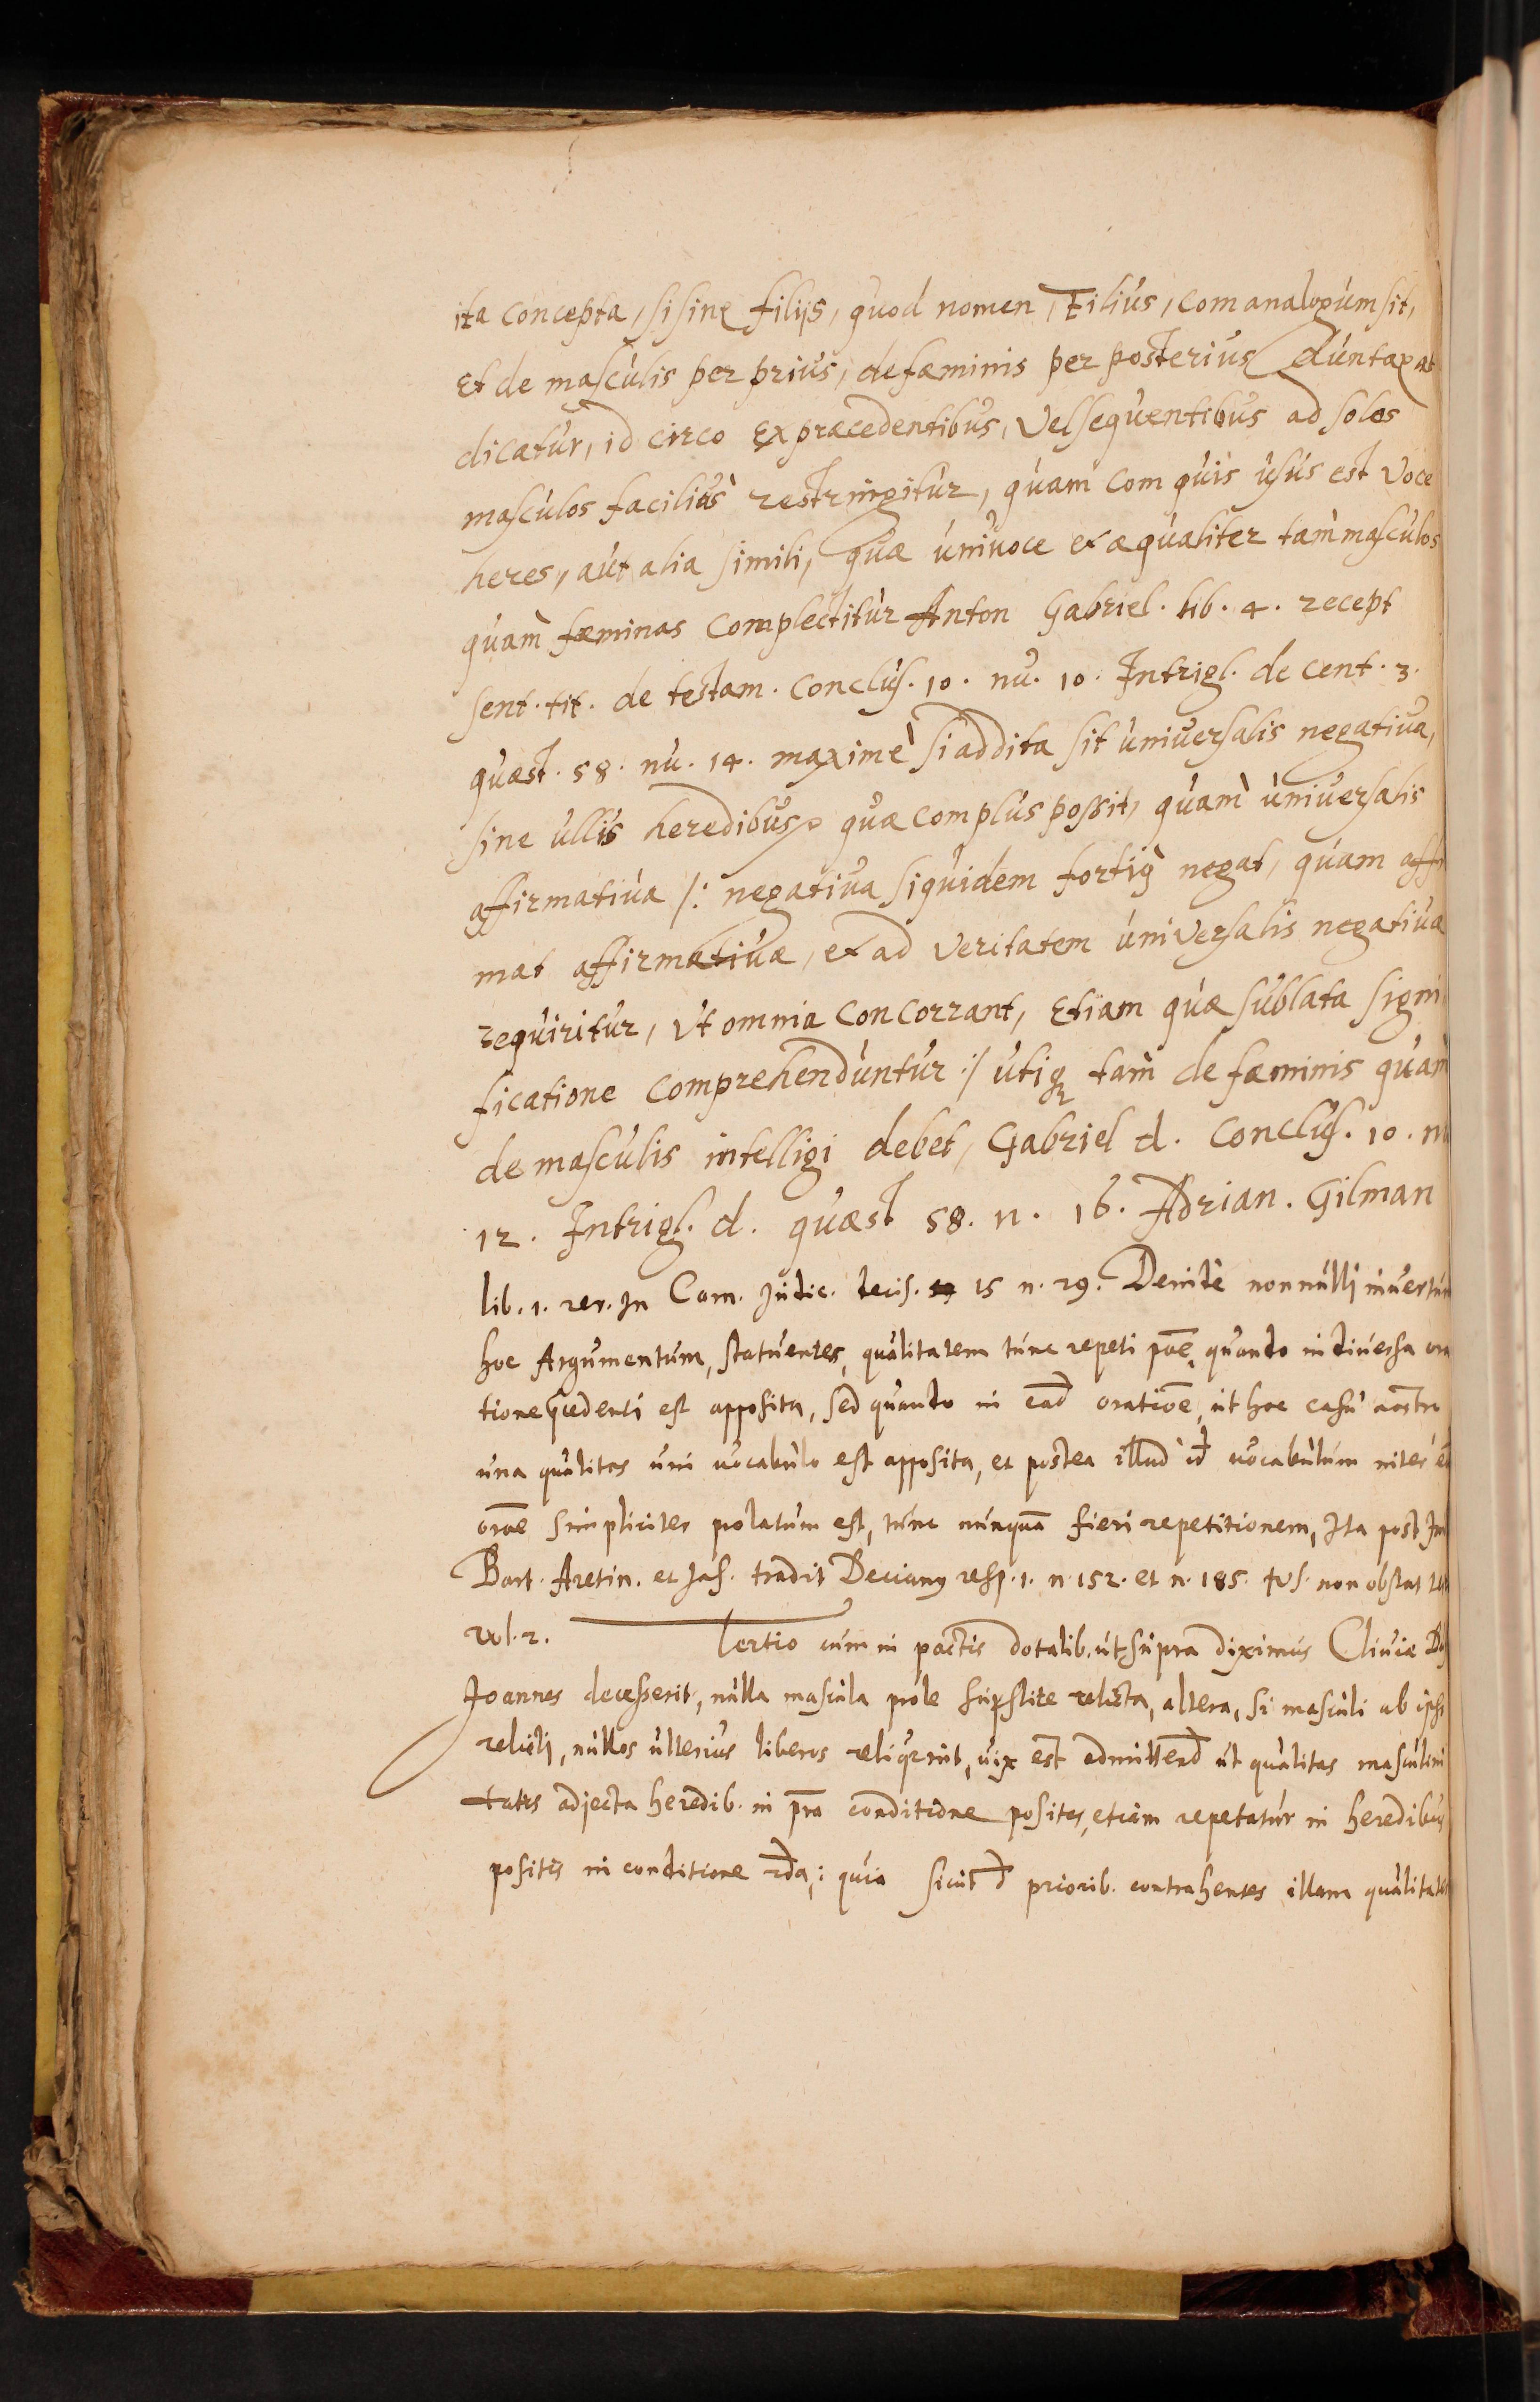 ita concepta, si sine filijs, quod nomen, Filius, com analogum sit,
Et de masculis per prius, de fæminis per posterius duntaxat
dicatur, id circo ex præcedentibus, vel sequentibus ad solos
masculos facilius restringitur, quam com quis usus est voce
heres, aut alia simili, quæ univoce et æqualiter tam masculos
quam fæminas complectitur Anton Gabriel. lib. 4. recept
sent. tit. de testam. conclus. 10. nu. 10. Intrigl. de cent. 3.
quæst. 58. nu. 14. maximè si addita sit universalis negativa,
sine ullis heredibus, quæ com plus possit, quam universalis
affirmativa /: negativa siquidem fortiꝰ negat, quam affir
mat affirmativa, et ad veritatem universalis negativa
requiritur, ut omnia concorrant, Etiam quæ sublata signi
ficatione comprehenduntur :/ utiqꝫ tam de fæminis quam
de masculis intelligi debet, Gabriel d. conclus. 10. n
12. Intrigl. d. quæst 58. n. 16. Adrian. Gilman
lib. 1. rer. in Cam. Judic. decis. 15 n. 29. Deinde nonnulli invertun
hoc Argumentum, statuentes, qualitatem tunc repeti poße, quando in diversa ora
tione est apposita, sed quando in ead oratioē, ut hoc casu nostro
una qualitas uni vocabulo est apposita, et postea illud id vocabulum
oraōe simpliciter prolatum est, tunc nunquā fieri repetitionem, Ita post
Bart. Aretin. et Jas. tradit Decianꝰ resp. 1. n. 152. et n. 185. vs. non obstat
vol. 2. Tertio cum in pactis dotalib. ut supra diximus Cliviæ
Joannes decesserit, nulla mascula prole supstite relicta, altera, si masculi ab ipso
relicti, nullos ulterius liberos reliquerint, vix est admittend ut qualitas masculini
tatis adjecta heredib. in pra conditione positis, etiam repetatur in heredibus
positis in conditione 2da, : quia sicut d prioribꝰ contrahentes illam qualitatem